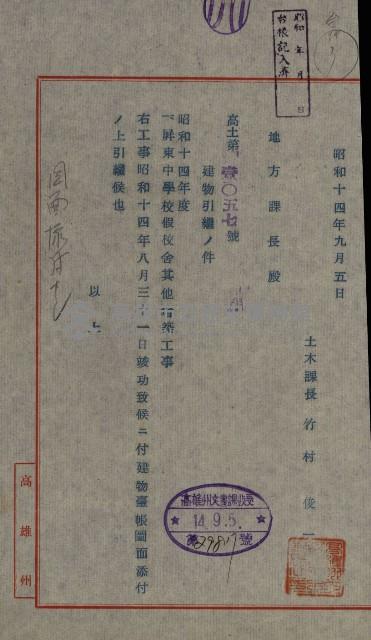 昭和 年 月 日
台帳記入濟
昭和十四年九月五日
土木課長 竹村俊一
地方課長殿
高土第壹〇五七號
建物引繼ノ件
昭和十四年度
一、屏東中學校假校舍其他新築工事
右工事昭和十四年八月三十一日竣功致候ニ付建物臺帳圖面添付
ノ上引繼候也
以上
高雄州文書課收受
14.9.5.
第29817號
高雄州